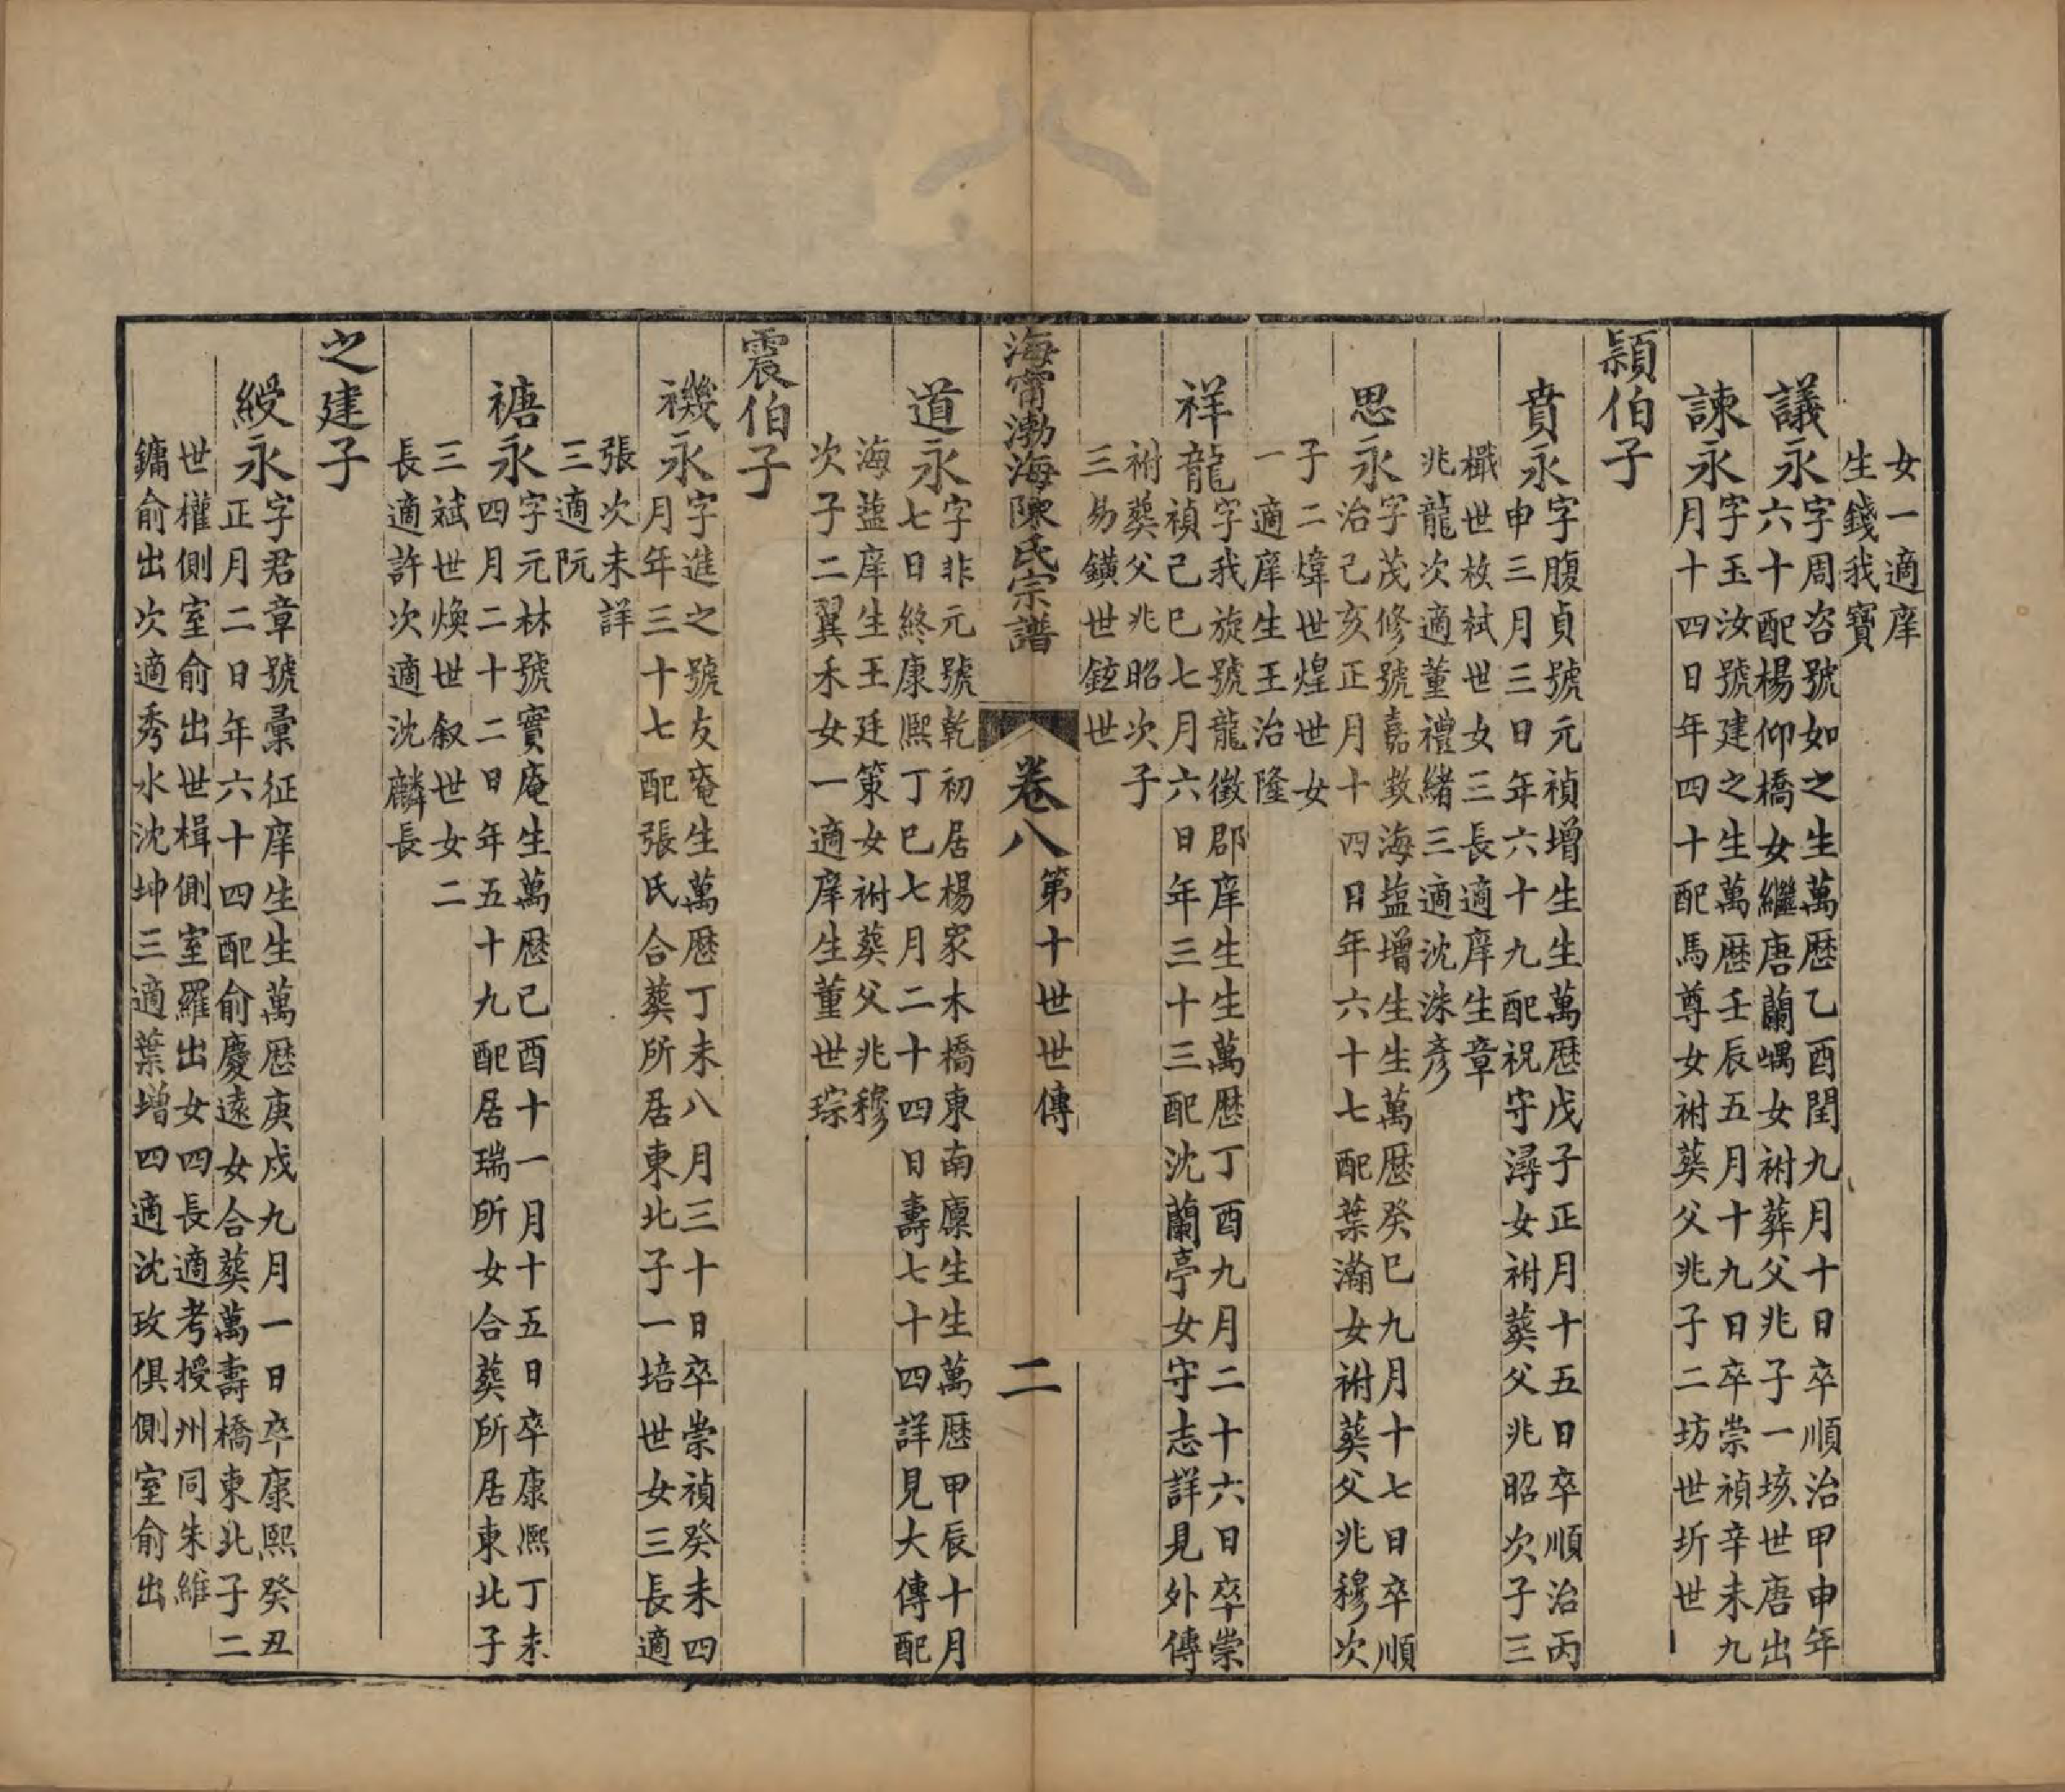 女一適庠
生錢我寶
永議
字周咨號如之生萬歷乙酉閏九月十日卒順治甲申年
六十配楊仰橋女繼唐蘭嵎女祔葬父兆子一垓世唐出
永諫
字玉汝號建之生萬歷壬辰五月十九日卒崇禎辛未九
月十四日年四十配馬尊女祔葬父兆子二坊世圻世
伯穎子
永賁
字腹貞號元禎增生生萬歷戊子正月十五日卒順治丙
申三月三日年六十九配祝守潯女祔葵父兆昭次子三
檝世枚栻世女三長適庠生章
兆龍次適董禮緒三適沈洙彥
永思
字茂修號嘉㪟海盐增生生萬歷癸巳九月十七日卒順
治己亥正月十四日年六十七配葉瀚女祔葵父兆穆次
子二煒世煌世女
一適庠生王治隆
龍祥
字我旋號龍徵郡庠生生萬歷丁酉九月二十六日卒崇
禎己巳七月六日年三十三配沈蘭亭女守志詳見外傳
祔葵父兆昭次子
三易鐄世鉉世
海甯渤海陳氏宗譜
卷八
第十世世傳
二
永道
字非元號乾初居楊家木橋東南廪生生萬歷甲辰十月
七日終康熙丁巳七月二十四日壽七十四詳見大傳配
海盐庠生王廷策女祔葵父兆穆
次子二翼禾女一適庠生董世琮
伯震子
永禨
字進之號友菴生萬歷丁未八月三十日卒崇禎癸未四
月年三十七配張氏合葵所居東北子一培世女三長適
張次未詳
三適阮
永禟
字元林號實庵生萬歷己酉十一月十五日卒康熙丁未
四月二十二日年五十九配居瑞所女合葵所居東北子
三斌世煥世叙世女二
長適許次適沈麟長
建之子
永綬
字君章號彙征庠生生萬歷庚戌九月一日卒康熙癸丑
正月二日年六十四配俞慶遠女合葵萬壽橋東北子二
世權側室俞出世楫側室羅出女四長適考授州同朱維
鏞俞出次適秀水沈坤三適葉增四適沈玫俱側室俞出